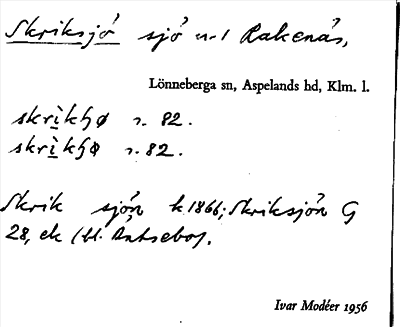 Skriksjö sjö n-1 Rakenäs,
Lönneberga sn, Aspelands hd, Klm. l.
skrìkɧø r. 82.
skrìkɧø r. 82.
Skrik sjön k 1866; Skriksjön G
28, ek (bl. Antsebo).
Ivar Modéer 1956